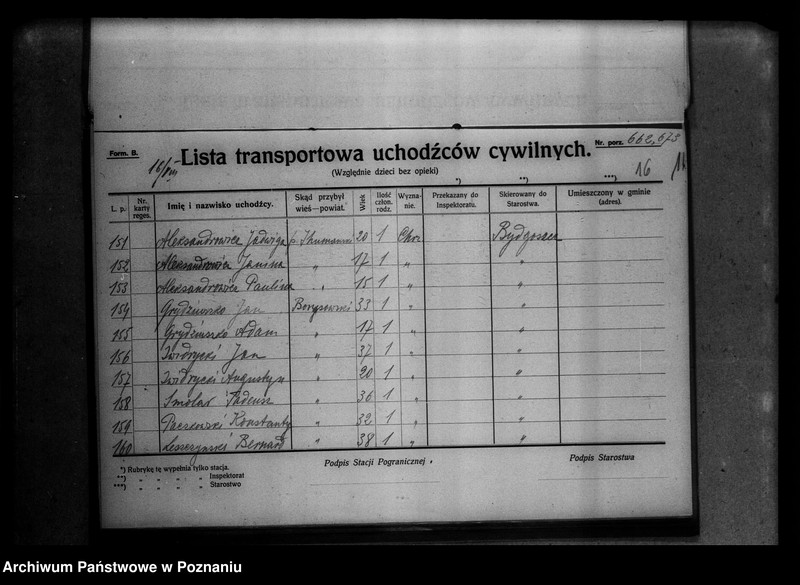 Form. B.
Nr. porz. 662,673
16/VIII Lista transportowa uchodźców cywilnych.
(Względnie dzieci bez opieki)
*) **) ***) 16
L. p. Nr. karty reges. Imię i nazwisko uchodźcy. Skąd przybył wieś—powiat. Wiek Ilość człon. rodz. Wyznanie. Przekazany do Inspektoratu. Skierowany do Starostwa. Umieszczony w gminie (adres).
151 Aleksandrowicz Jadwiga 20 1 Chrz Bydgoszcz
152 Aleksandrowicz Janina " 17 1 " "
153 Aleksandrowicz Paulina " 15 1 " "
154 Grydziuszko Jan Borysowski 33 1 " "
155 Grydziuszko Adam " 17 1 " "
156 Jan " 37 1 " "
157 Augustyn " 20 1 " "
158 Smolar Tadeusz " 36 1 " "
159 Paczkowski Konstanty " 32 1 " "
160 Leszczyński Bernard " 38 1 " "
*) Rubrykę tę wypełnia tylko stacja.
**) " " " " Inspektorat
***) " " " " Starostwo
Podpis Stacji Pogranicznej
Podpis Starostwa
Archiwum Państwowe w Poznaniu